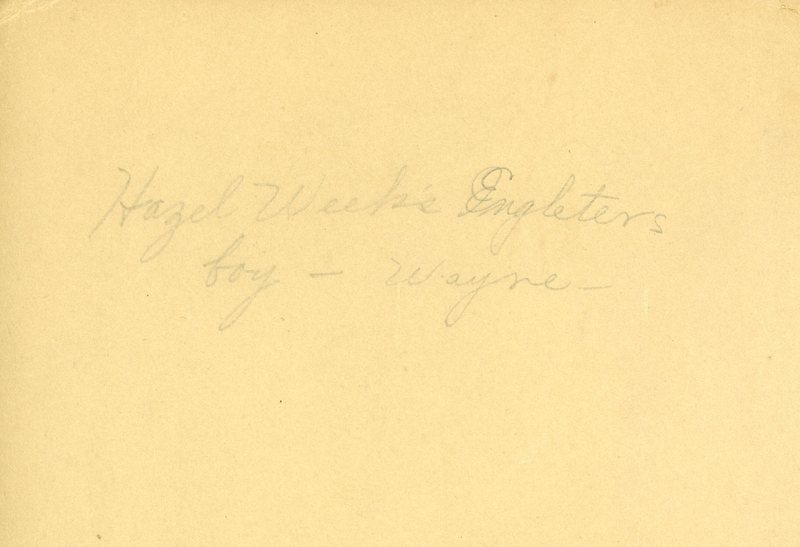 Hazel Week's Engleters
boy – Wayne –